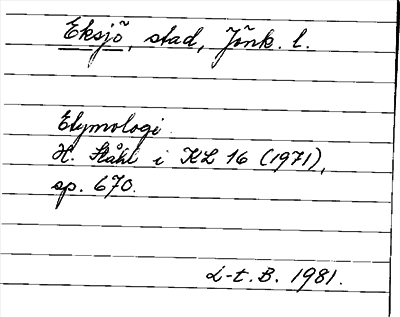 Eksjö, stad, Jönk. l.
Etymologi
H. Ståhl i KL 16 (1971),
sp. 670.
L-t. B. 1981.